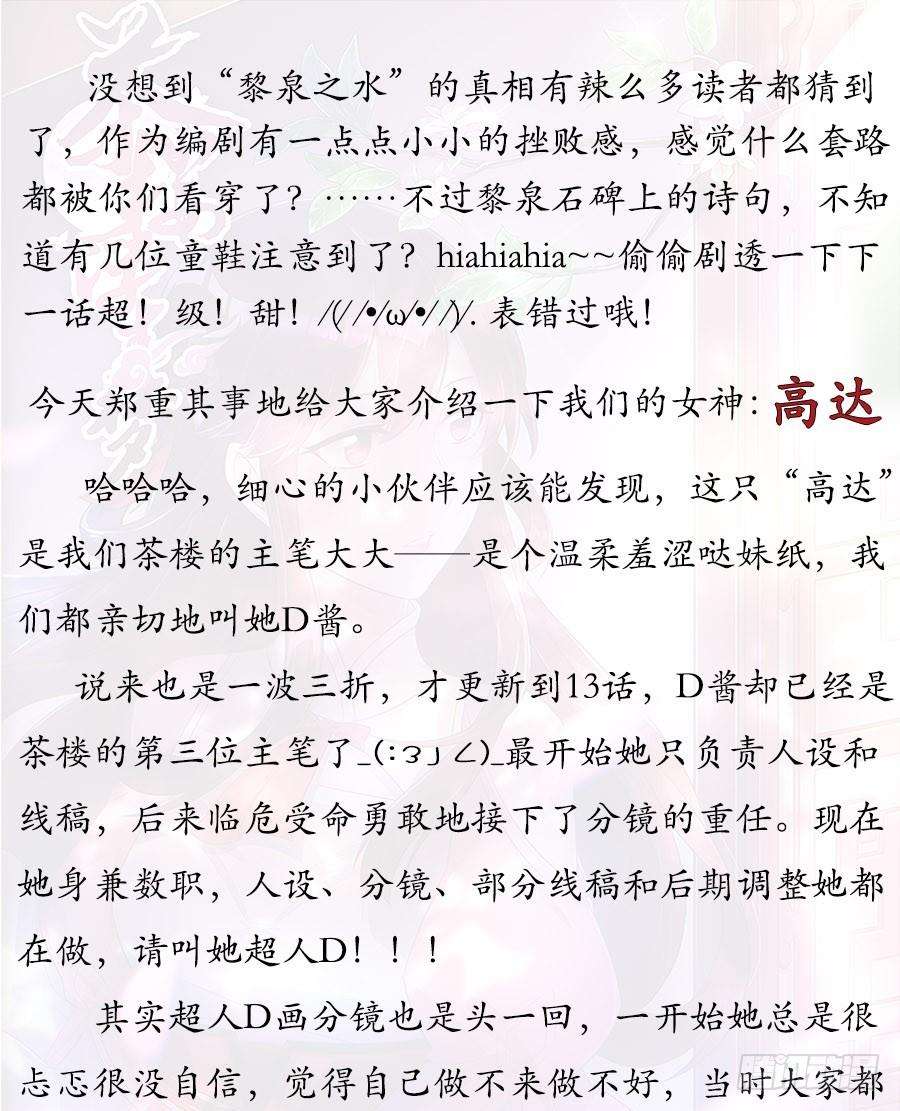 没想到“黎泉之水”的真相有辣么多读者都猜到
了，作为编剧有一点点小小的挫败感，感觉什么套路
都被你们看穿了？……不过黎泉石碑上的诗句，不知
道有几位童鞋注意到了？hiahiahia~~偷偷剧透一下下
一话超！级！甜！/(//•/ω/•//)/. 表错过哦！
今天郑重其事地给大家介绍一下我们的女神：高达
哈哈哈，细心的小伙伴应该能发现，这只“高达”
是我们茶楼的主笔大大——是个温柔羞涩哒妹纸，我
们都亲切地叫她D酱。
说来也是一波三折，才更新到13话，D酱却已经是
茶楼的第三位主笔了_(:з」∠)_最开始她只负责人设和
线稿，后来临危受命勇敢地接下了分镜的重任。现在
她身兼数职，人设、分镜、部分线稿和后期调整她都
在做，请叫她超人D！！！
其实超人D画分镜也是头一回，一开始她总是很
忐忑很没自信，觉得自己做不来做不好，当时大家都